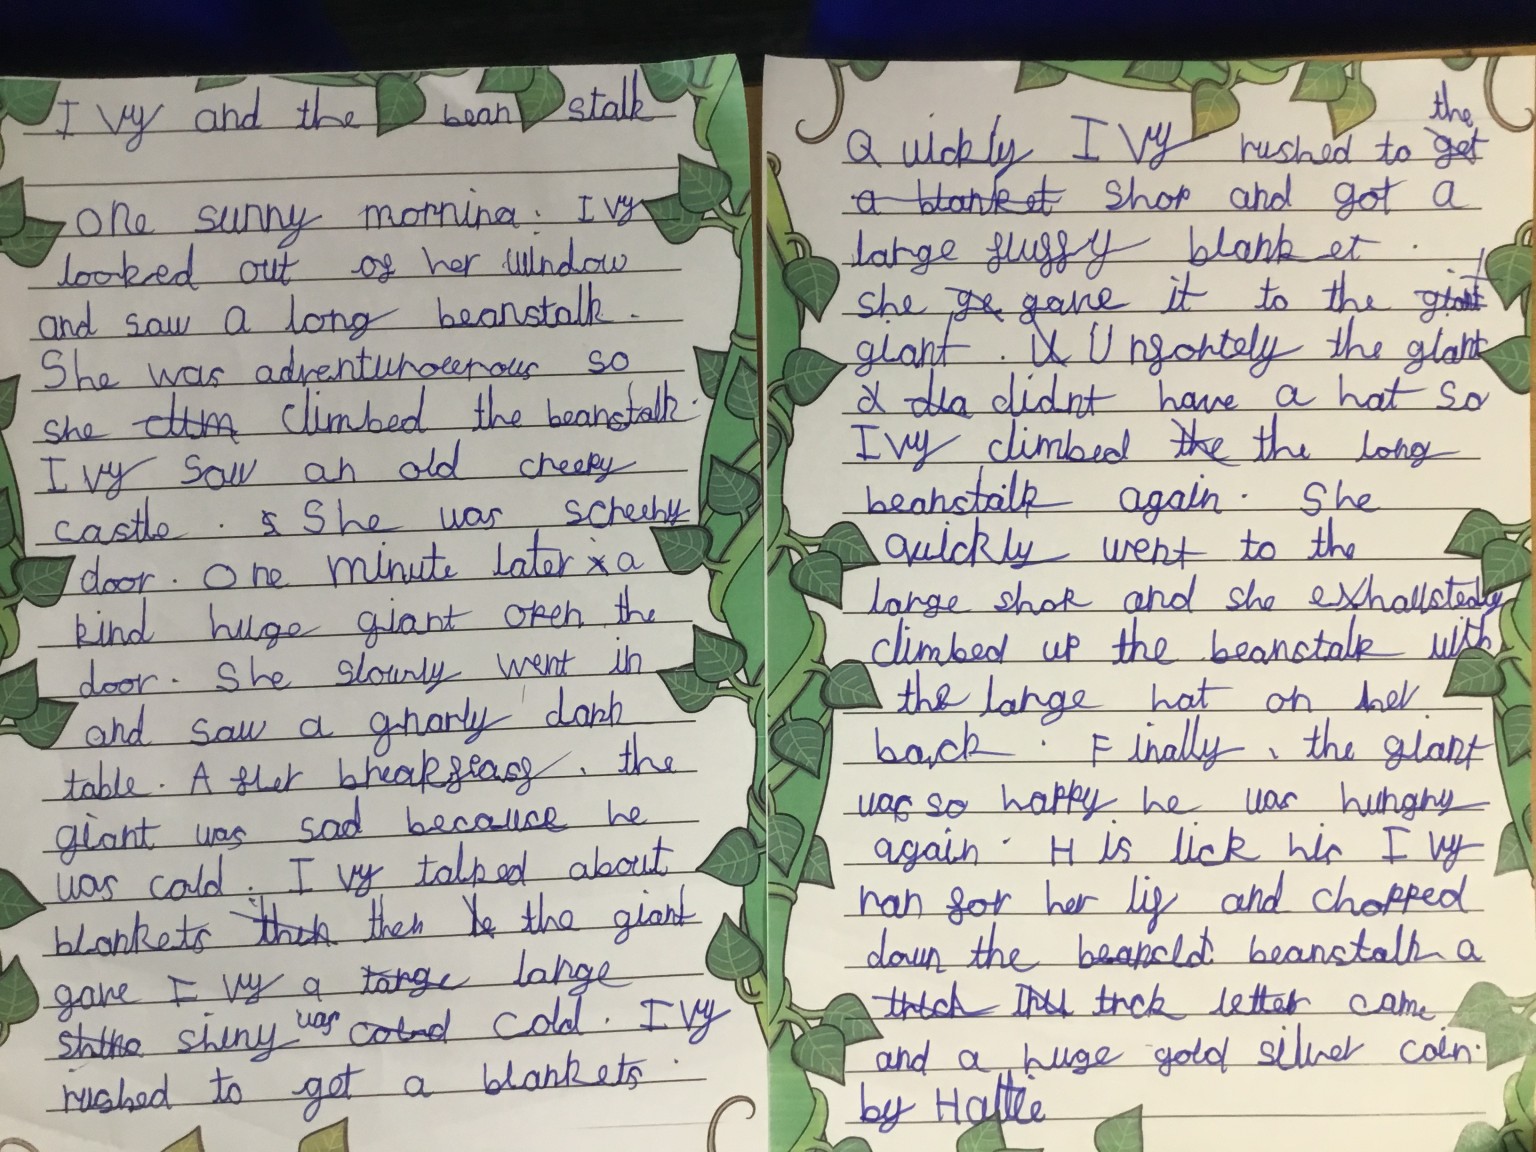 Ivy and the bean stalk
One sunny morning. Ivy
looked out of her window
and saw a long beanstalk.
She was adventurouerous so
she climbed the beanstalk.
Ivy saw an old creeky
castle. She was
door. One minute later a
kind huge giant open the
door. She slowly went in
and saw a gnarly dark
table. After breakfeast, the
giant was sad because he
was cold. Ivy talked about
blankets then the giant
gave Ivy a large
shiny was cold. Ivy
rushed to get a blankets.
Quickly Ivy rushed to the
get
a blanket shop and got a
large fluffy blanket.
she gave it to the
giant. Unfortely the giant
didnt have a hat so
Ivy climbed the the long
beanstalk again. She
quickly went to the
large shop and she exhaustedly
climbed up the beanstalk with
the large hat on her
back. Finally, the giant
was so happy he was hungry
again. His lick his Ivy
ran for her lif and chopped
down the beanstalk a
trick letter came
and a huge gold silver coin.
by Hattie